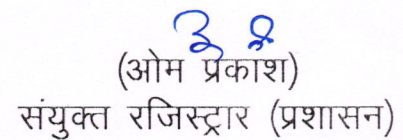 (ओम प्रकाश)
संयुक्त रजिस्ट्रार (प्रशासन)